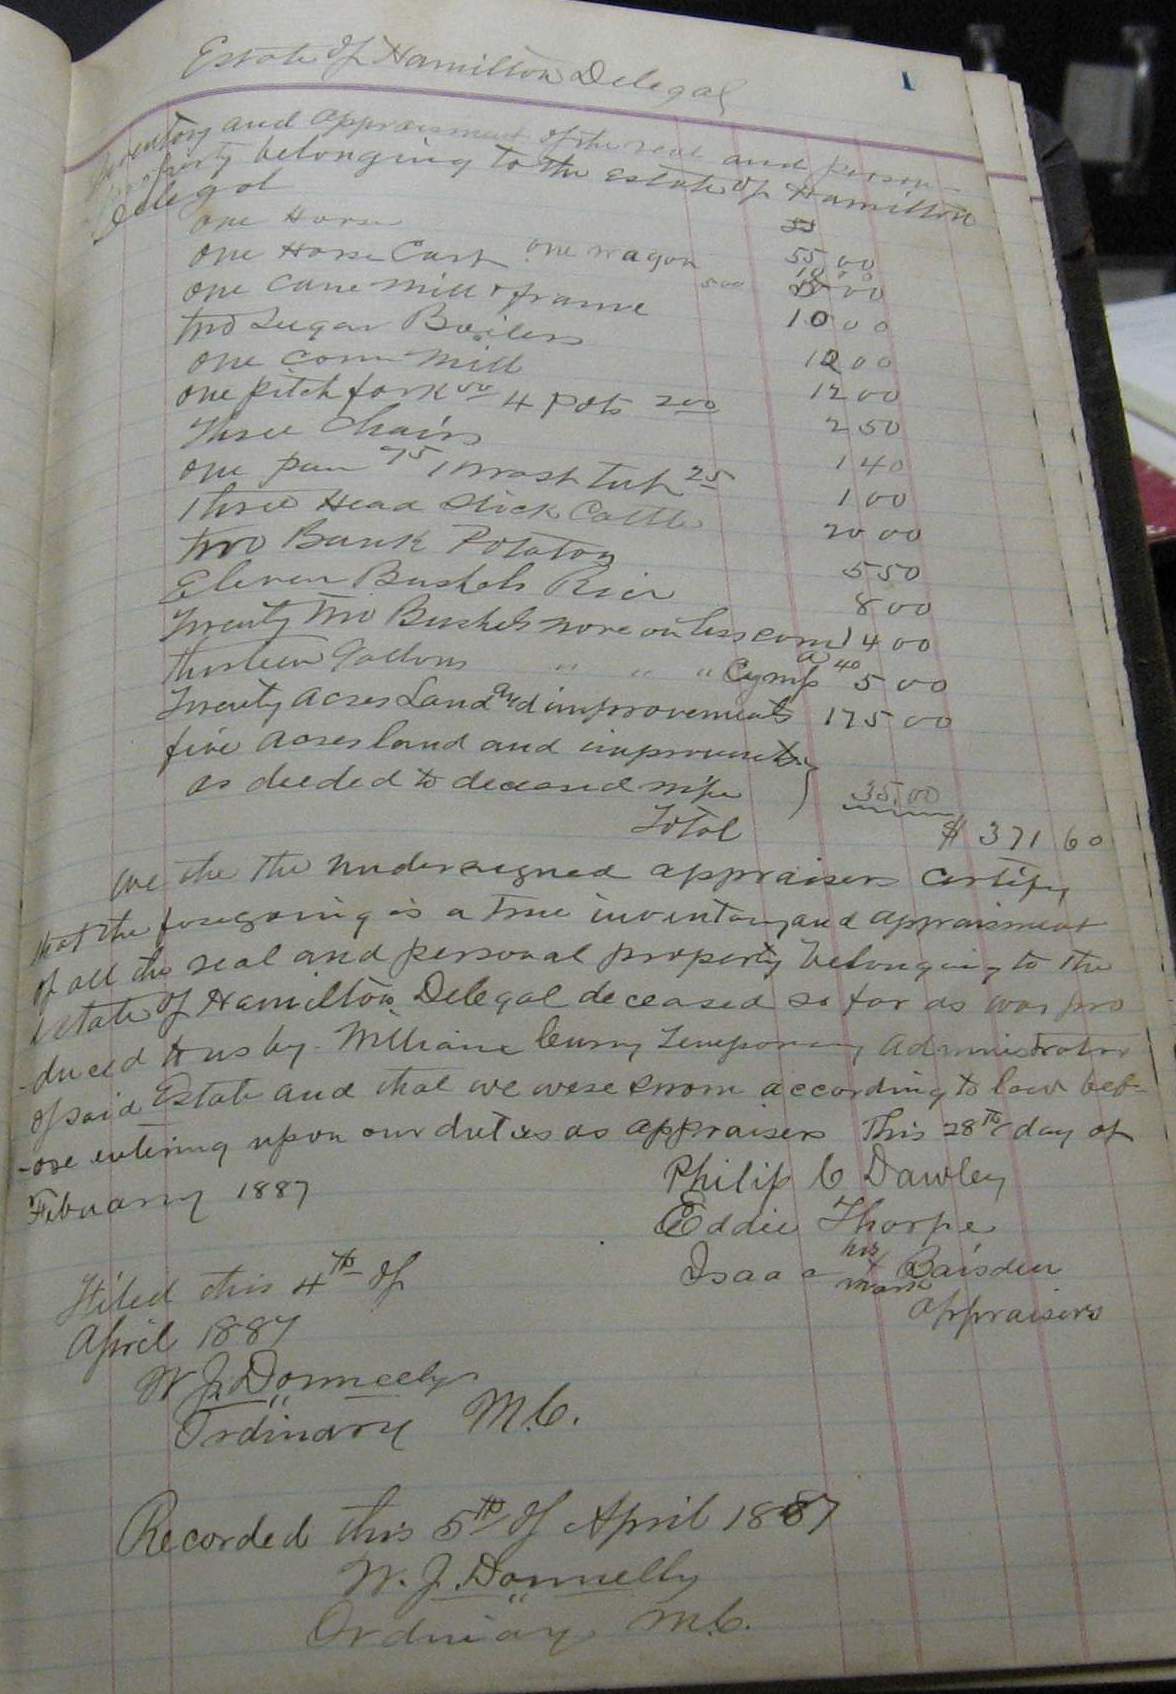 Estate of Hamilton Delegal 1
Inventory and appraisment of the real and person-
property belonging to the Estate of Hamilton
Delegal
one Horse 55 00
one Horse Cart one wagon 500
one Cane Mill & frame 10 00
two Sugar Boilers 12 00
one corn Mill 12 00
one pitch fork 4 pots 200 2 50
Three Chairs 1 40
one pan 75 1 wash tub 25 1 00
Three Head Stick Cattle 20 00
two Bank Potatoes 5 50
Eleven Bushels Rice 8 00
Twenty Two Bushels more or less corn 14 00
thirteen Gallons " " " Cyrup a 40 5 00
Twenty acres Land and improvements 175 00
five acres land and improvements
as deeded to deceased wife 35.00
Total $ 371 60
We the the undersigned appraisers certify
that the foregoing is a true inventory and appraisment
of all the real and personal property belonging to the
estate of Hamilton Delegal deceased so far as was pro
-duced to us by William Curry Temporary Administrator
of said Estate and that we were sworn according to law bef-
-ore entering upon our duties as appraisers This 28th day of
February 1887
Philip C Dawley
Eddie Thorpe
Isaac his x mark Baisden
appraisers
Filed this 4th of
April 1887
W J. Donnelly
Ordinary M.C.
Recorded this 5th of April 1887
W. J. Donnelly
Ordinary M.C.